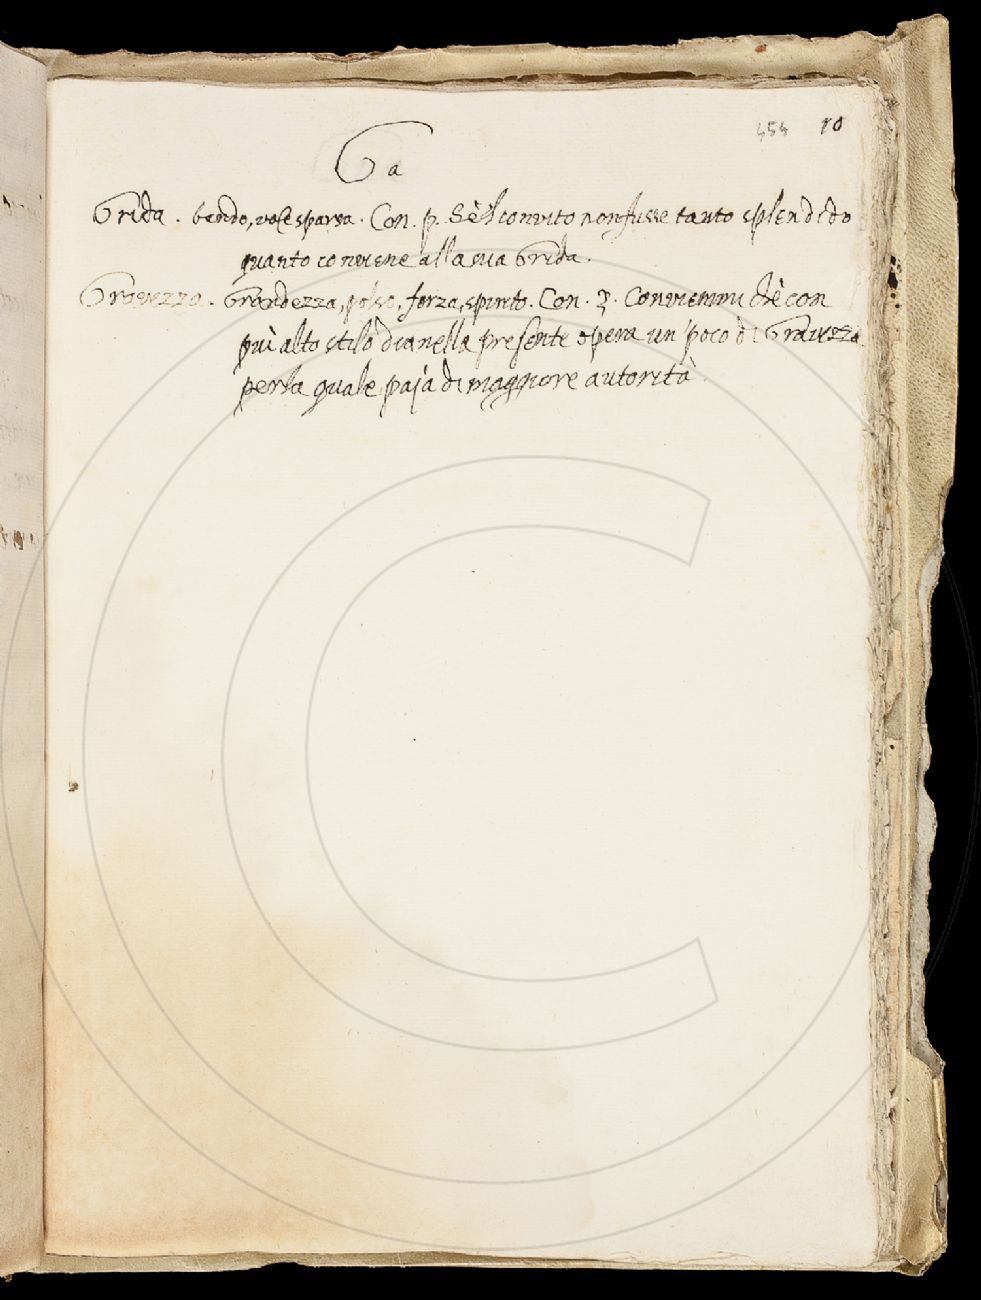 454 10
Ga
Grida. bando, voce sparsa. Con. p. Sè 'l convito non fusse tanto splendido
quanto conviene alla sua Grida.
Gravezza. Grandezza, polso, forza, spirito. Con. p. Conviemmi chè con
più alto stilo dia nella presente opera un' poco di Gravezza
per la quale paja di maggiore autorità.